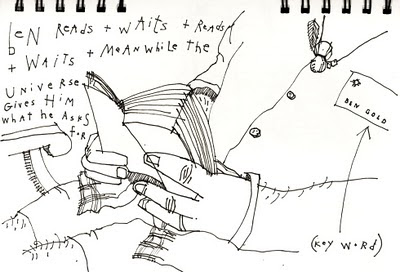 BEN READS + WAITS + READS
+ WAITS + MEANWHILE THE
UNIVERSE
GIVES HIM
WHAT HE ASKS
FOR
BEN GOLD
(KEY WORD)